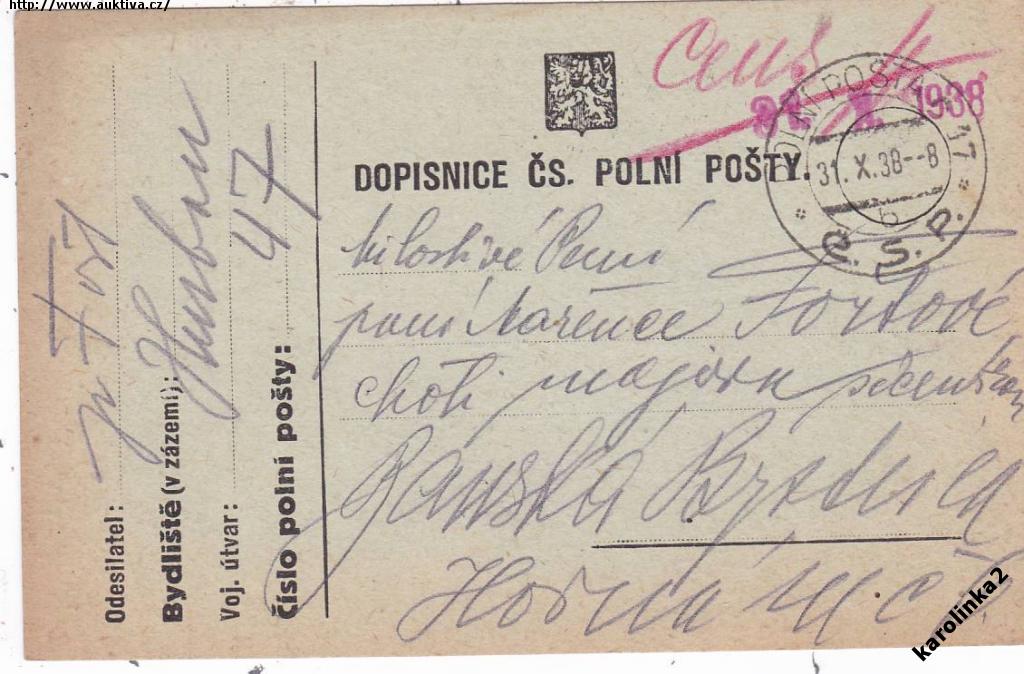 http://www.auktiva.cz/
cens
31. X. 1938
POLNÍ POŠTA 17
31. X. 38--8
b
Č. S. P.
DOPISNICE ČS. POLNÍ POŠTY.
Milostivé Paní
paní Mařence Fořtové
choti majora
Báňská Bystrica
Horná
Odesilatel:
Bydliště (v zázemí):
Voj. útvar:
Číslo polní pošty:
47
karolinka2